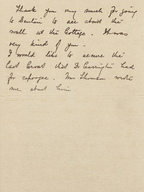 Thank you very much for going
to Dentein to see about the
wall at the Cottage. It was
very kind of you.
I would like to accure the
last trowl did D Carrington had
for refugee. Mr Thomson wrote
me about him